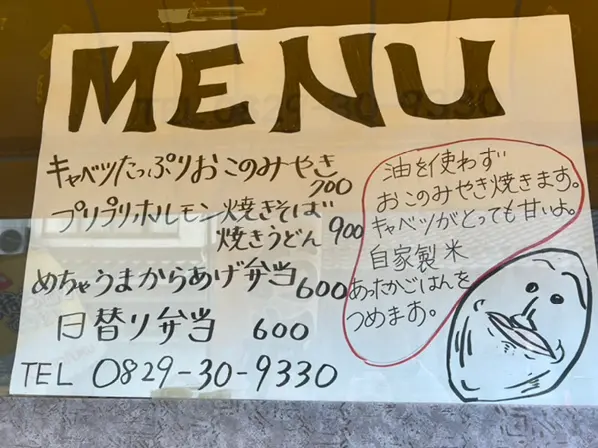 MENU
キャベツたっぷりおこのみやき
700
プリプリホルモン焼きそば
焼きうどん 900
めちゃうまからあげ弁当 600
日替り弁当 600
TEL 0829-30-9330
油を使わず
おこのみやき焼きます。
キャベツがとっても甘いよ。
自家製米
あったかごはんを
つめます。